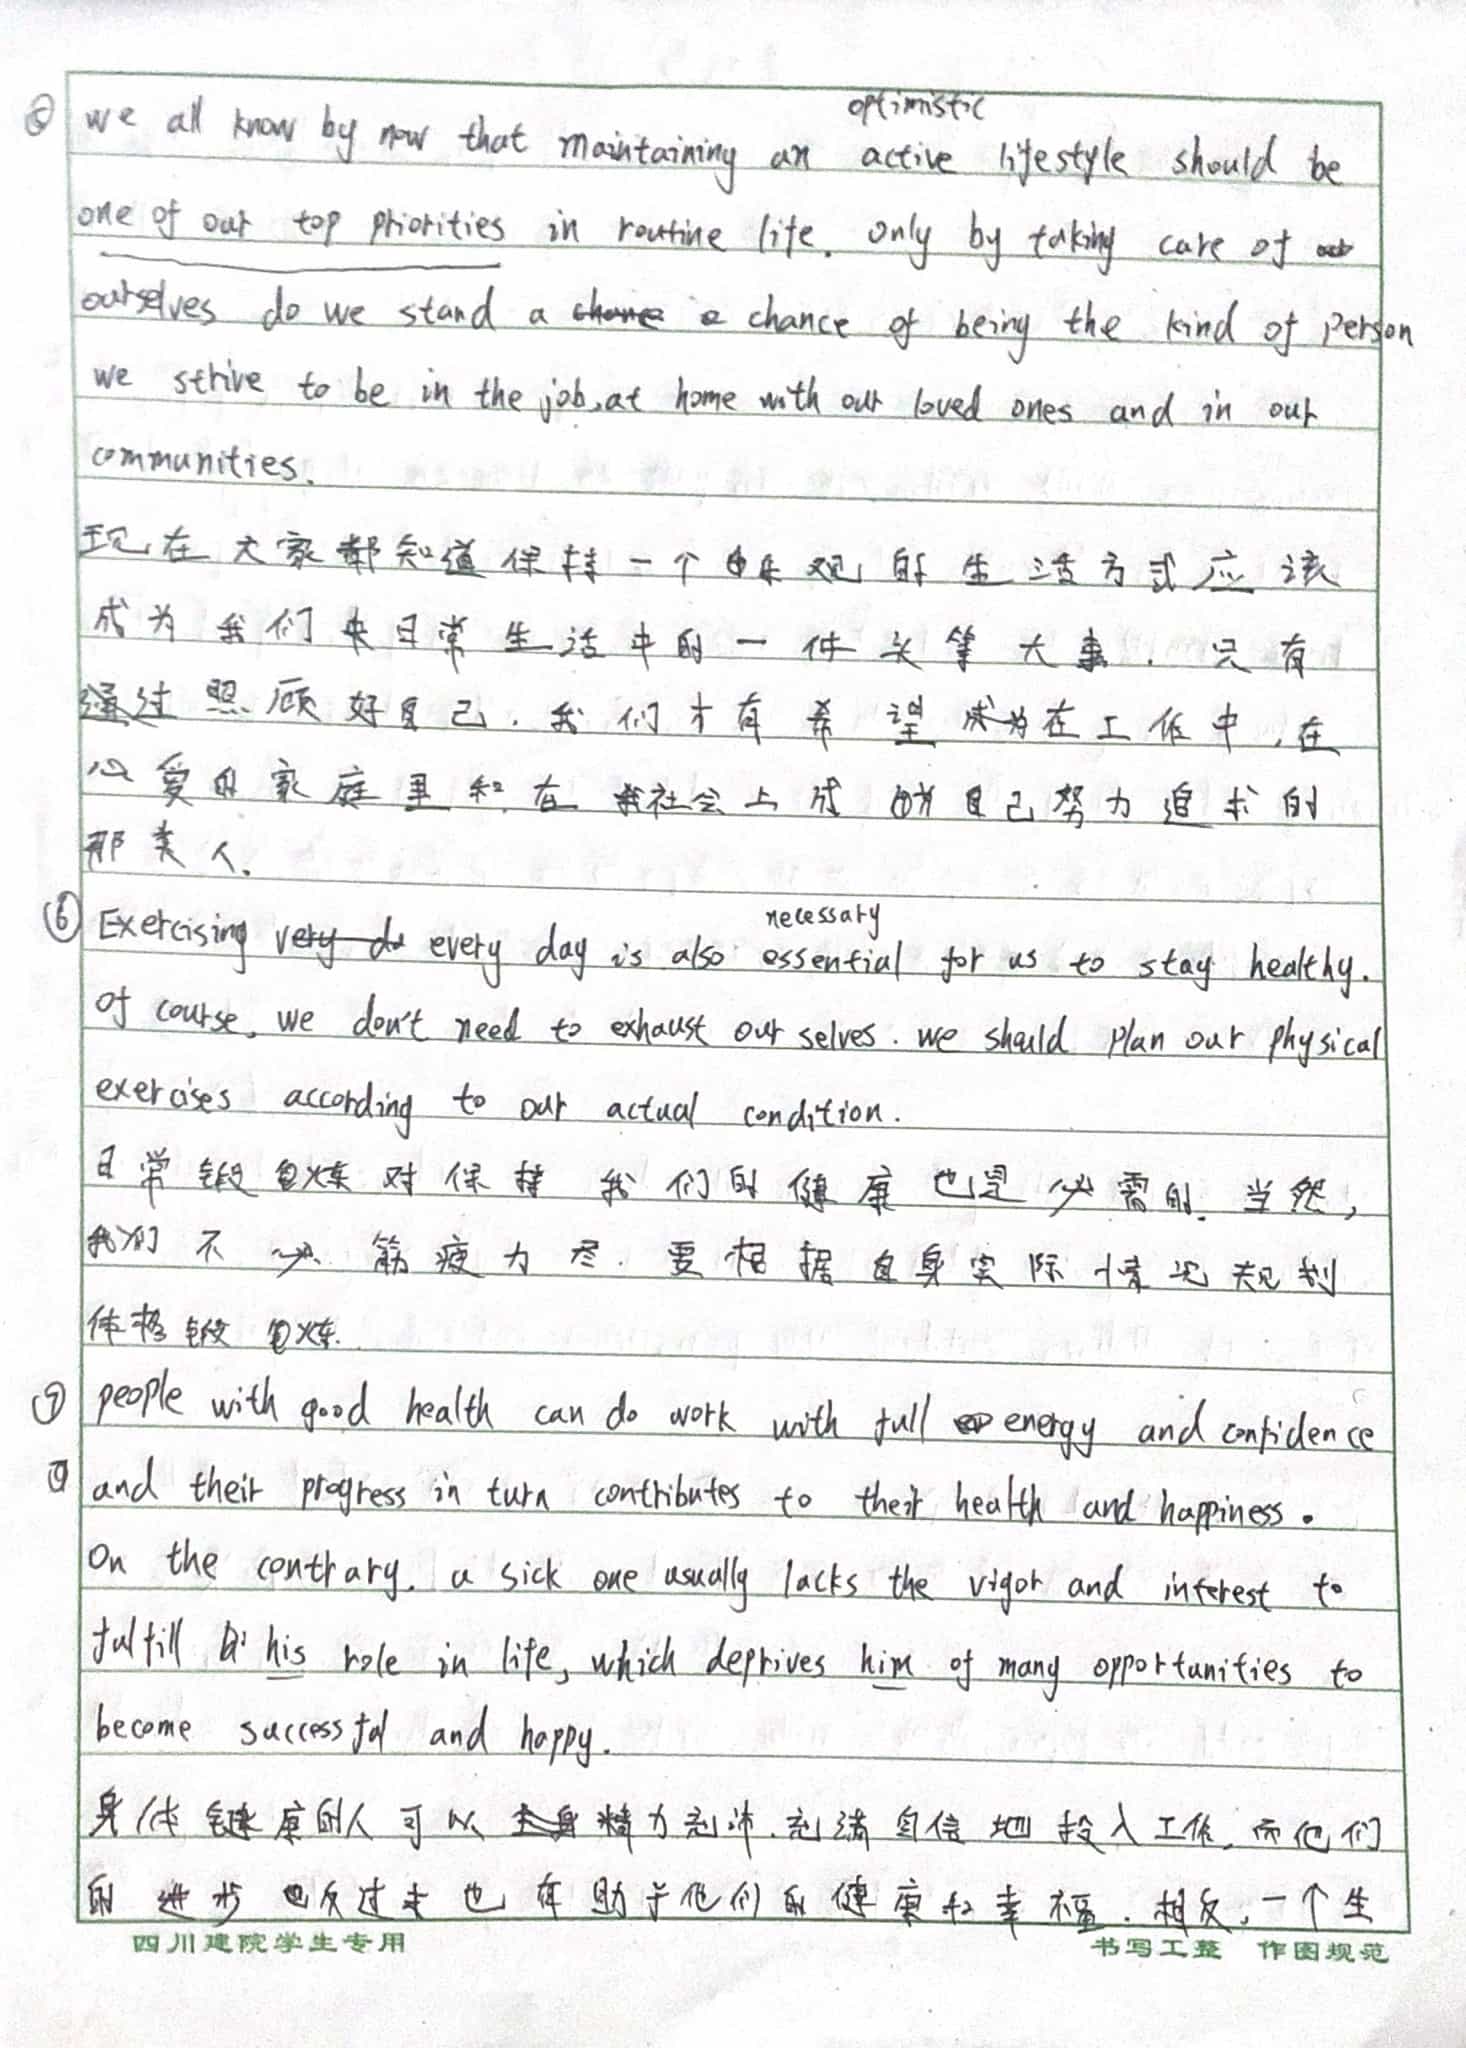 ⑤ we all know by now that maintaining an active lifestyle should be
optimistic
one of our top priorities in routine life. only by taking care of
ourselves do we stand a chance of being the kind of person
we strive to be in the job, at home with our loved ones and in our
communities.
现在大家都知道保持一个乐观的生活方式应该
成为我们日常生活中的一件头等大事.只有
通过照顾好自己.我们才有希望成为在工作中,在
心爱的家庭里和在社会上成为自己努力追求的
那类人.
⑥ Exercising every day is also essential for us to stay healthy.
necessary
of course, we don't need to exhaust our selves. we should plan our physical
exercises according to our actual condition.
日常锻炼对保持我们的健康也是必需的.当然,
我们不必筋疲力尽.要根据自身实际情况规划
体格锻炼.
⑦ people with good health can do work with full energy and confidence
and their progress in turn contributes to their health and happiness.
On the contrary. a sick one usually lacks the vigor and interest to
fulfill his role in life, which deprives him of many opportunities to
become successful and happy.
身体健康的人可以精力充沛.充满自信地投入工作,而他们
的进步反过来也有助于他们的健康和幸福.相反,一个生
四川建院学生专用
书写工整 作图规范